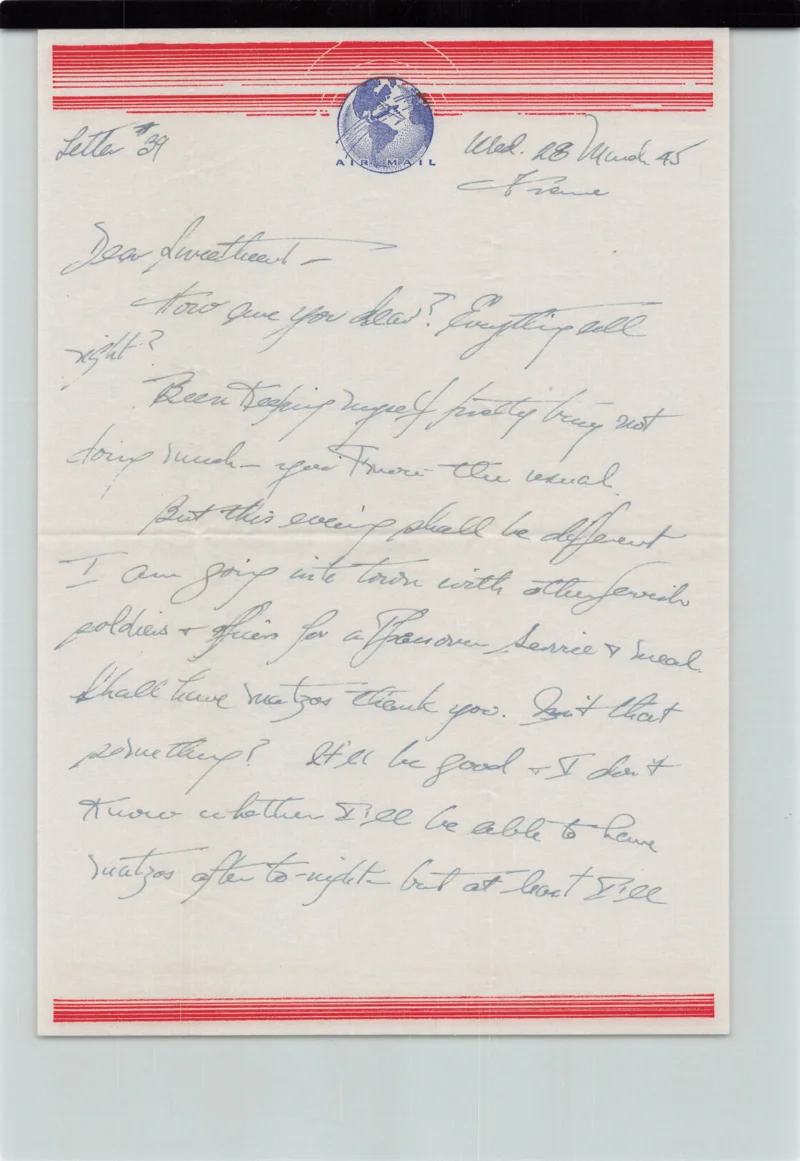 Letter #39
AIR MAIL
Wed. 28 March 45
France
Dear Sweetheart –
How are you dear? Everything all
right?
Been keeping myself pretty busy not
doing much – you know the usual.
But this evening shall be different
I am going into town with other Jewish
soldiers + officers for a Passover Service + meal.
Shall have matzos thank you. Isn't that
something? It'll be good + I don't
know whether I'll be able to have
matzos after to-night – but at least I'll